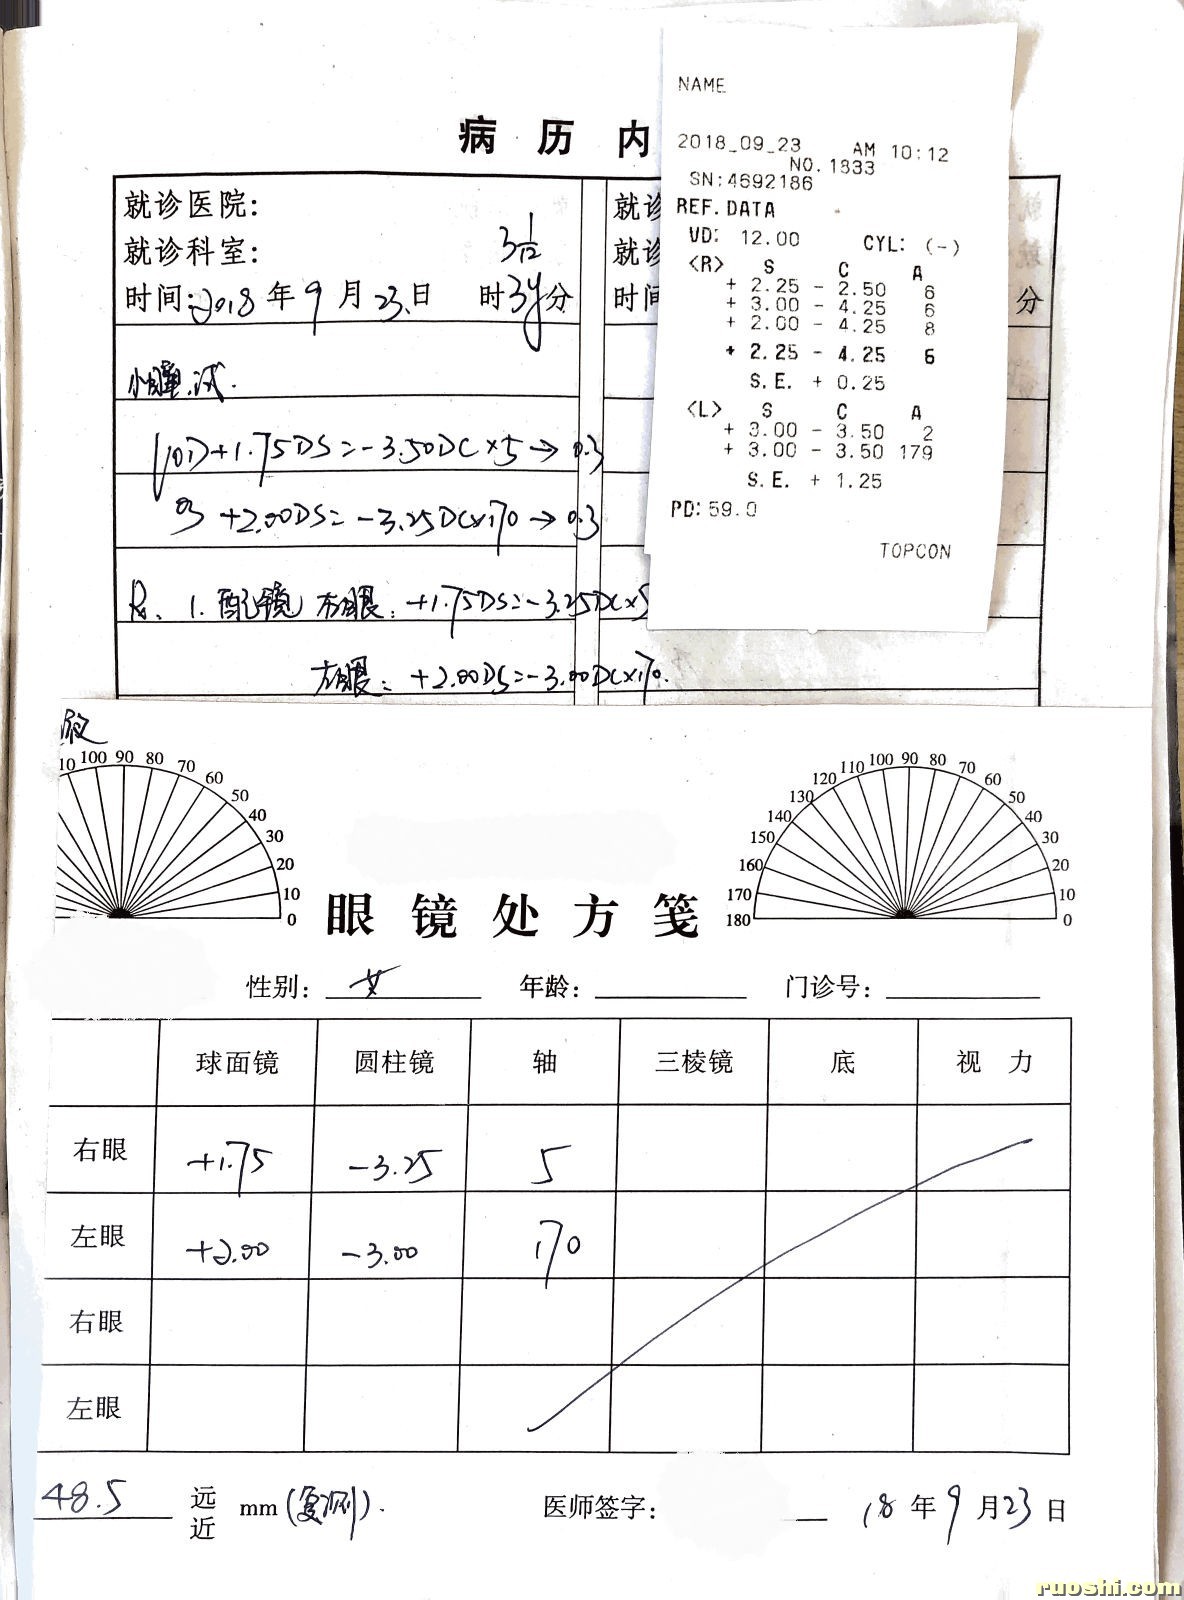 病 历 内
就诊医院:
就诊科室:
3 1/12
时间:2018年9月23日 时3y分
小瞳试.
OD+1.75DS=-3.50DC×5→0.3
OS +2.00DS=-3.25DC×170→0.3
Rx. 1. 配镜 右眼: +1.75DS=-3.25DC×5
左眼: +2.00DS=-3.00DC×170.
就诊
就诊
时间
分
NAME
2018_09_23 AM 10:12
NO.1833
SN:4692186
REF.DATA
VD: 12.00 CYL: (-)
<R> S C A
+ 2.25 - 2.50 6
+ 3.00 - 4.25 6
+ 2.00 - 4.25 8
+ 2.25 - 4.25 6
S.E. + 0.25
<L> S C A
+ 3.00 - 3.50 2
+ 3.00 - 3.50 179
S.E. + 1.25
PD: 59.0
TOPCON
10 100 90 80 70 60 50 40 30 20 10 0
180 170 160 150 140 130 120 110 100 90 80 70 60 50 40 30 20 10 0
眼镜处方笺
性别: 女 年龄: 门诊号:
球面镜 圆柱镜 轴 三棱镜 底 视力
右眼 +1.75 -3.25 5
左眼 +2.00 -3.00 170
右眼
左眼
48.5 远近 mm (复测). 医师签字: 18年9月23日
ruoshi.com